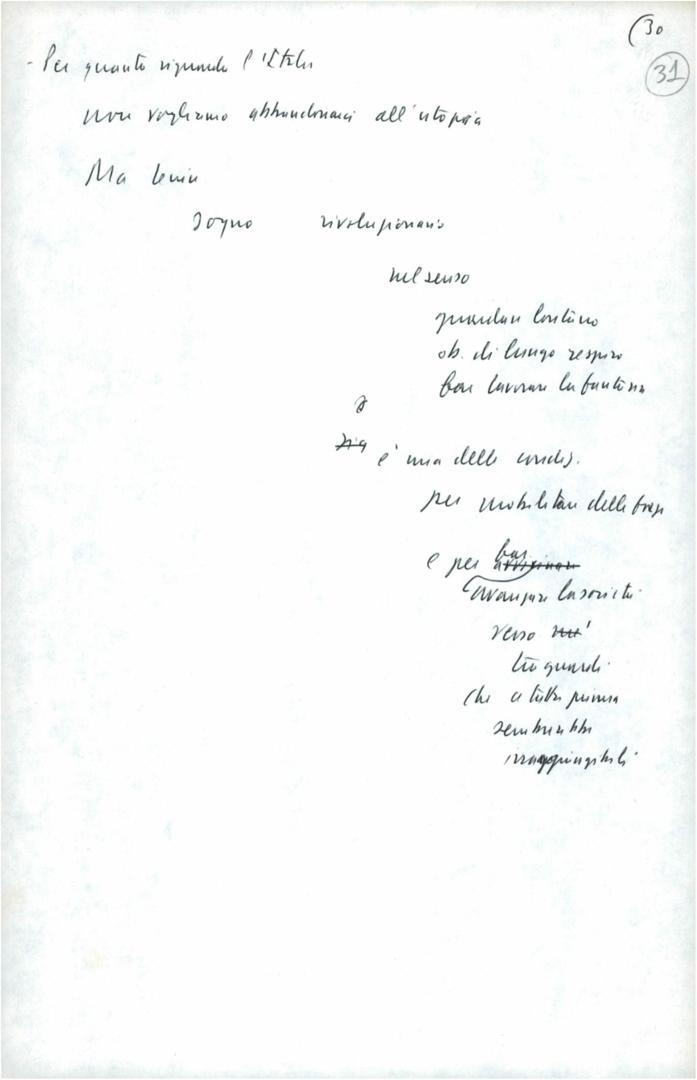 (30
31
- Per quanto riguarda l'Italia
non vogliamo abbandonarci all'utopia
Ma Lenin
sogno rivoluzionario
nel senso
guardare lontano
ob. di lungo respiro
fare lavorare la fantasia
è una delle condiz.
per mobilitare delle forze
e per far
avanzare la società
verso
traguardi
che a tutta prima
sembrerebbero
irraggiungibili